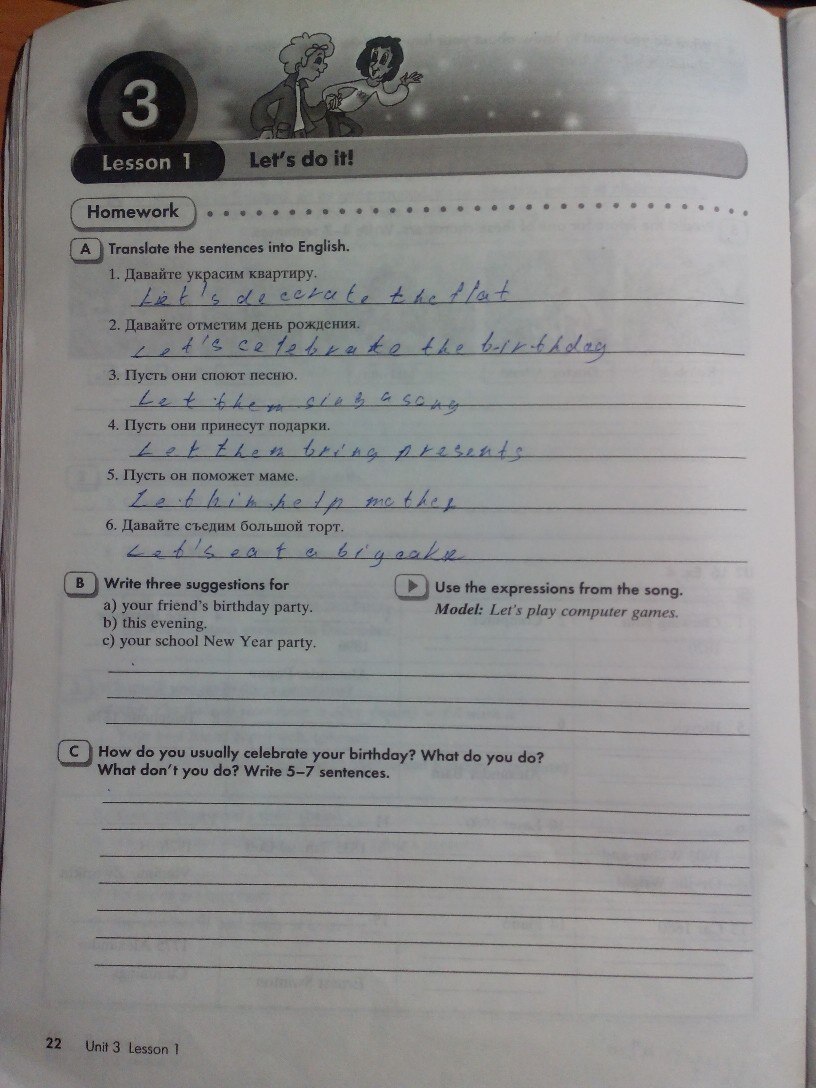 3
Lesson 1 Let's do it!
Homework
A Translate the sentences into English.
1. Давайте украсим квартиру.
Let's decorate the flat
2. Давайте отметим день рождения.
Let's celebrate the birthday
3. Пусть они споют песню.
Let them sing a song
4. Пусть они принесут подарки.
Let them bring presents
5. Пусть он поможет маме.
Let him help mother
6. Давайте съедим большой торт.
Let's eat a big cake
B Write three suggestions for
a) your friend's birthday party.
b) this evening.
c) your school New Year party.
Use the expressions from the song.
Model: Let's play computer games.
C How do you usually celebrate your birthday? What do you do?
What don't you do? Write 5–7 sentences.
22 Unit 3 Lesson 1